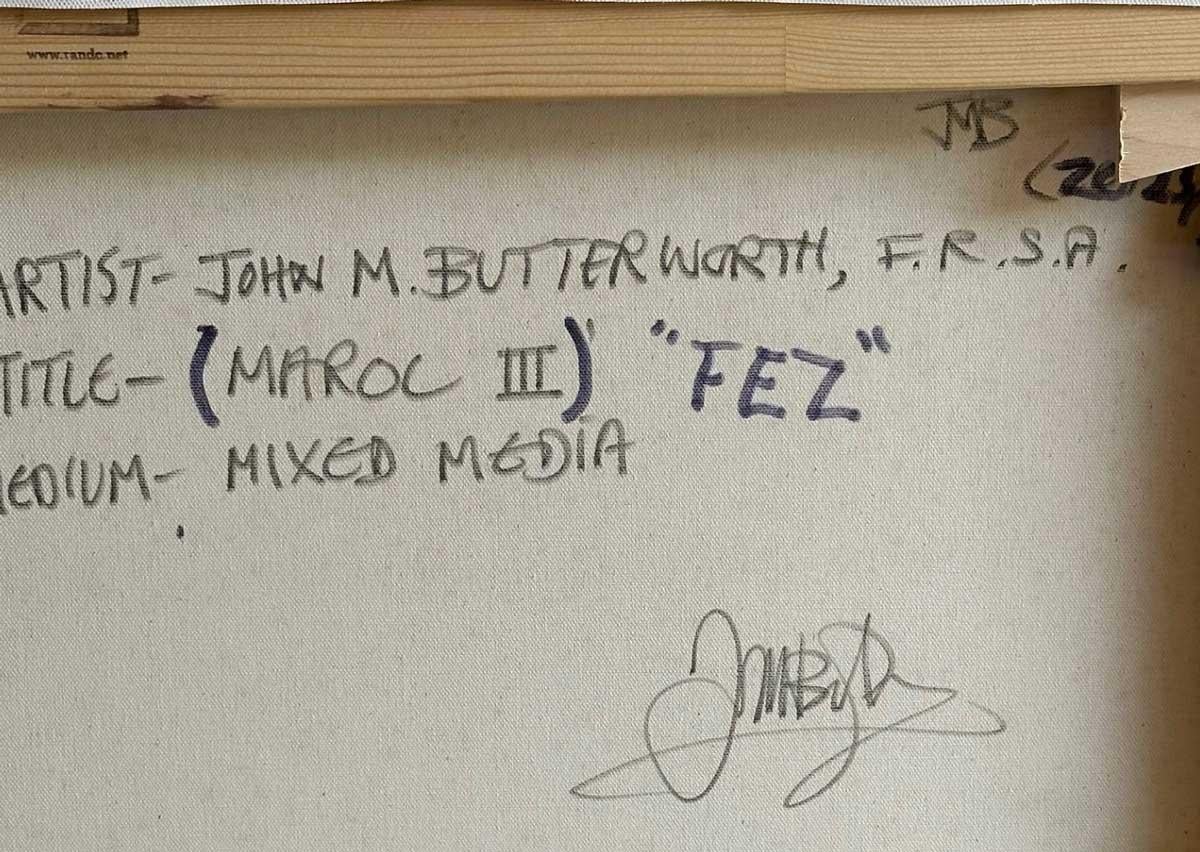 www.randc.net
JMB
ARTIST- JOHN M. BUTTERWORTH, F.R.S.A.
TITLE- (MAROC III) "FEZ"
MEDIUM- MIXED MEDIA